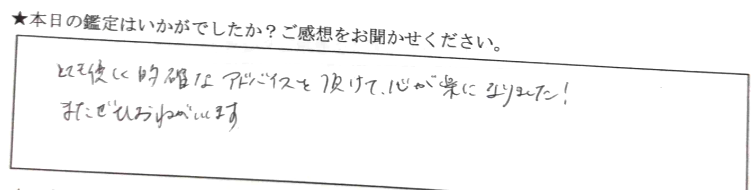 ★本日の鑑定はいかがでしたか？ご感想をお聞かせください。
とても優しく的確なアドバイスを頂けて、心が楽になりました！
またぜひおねがいします